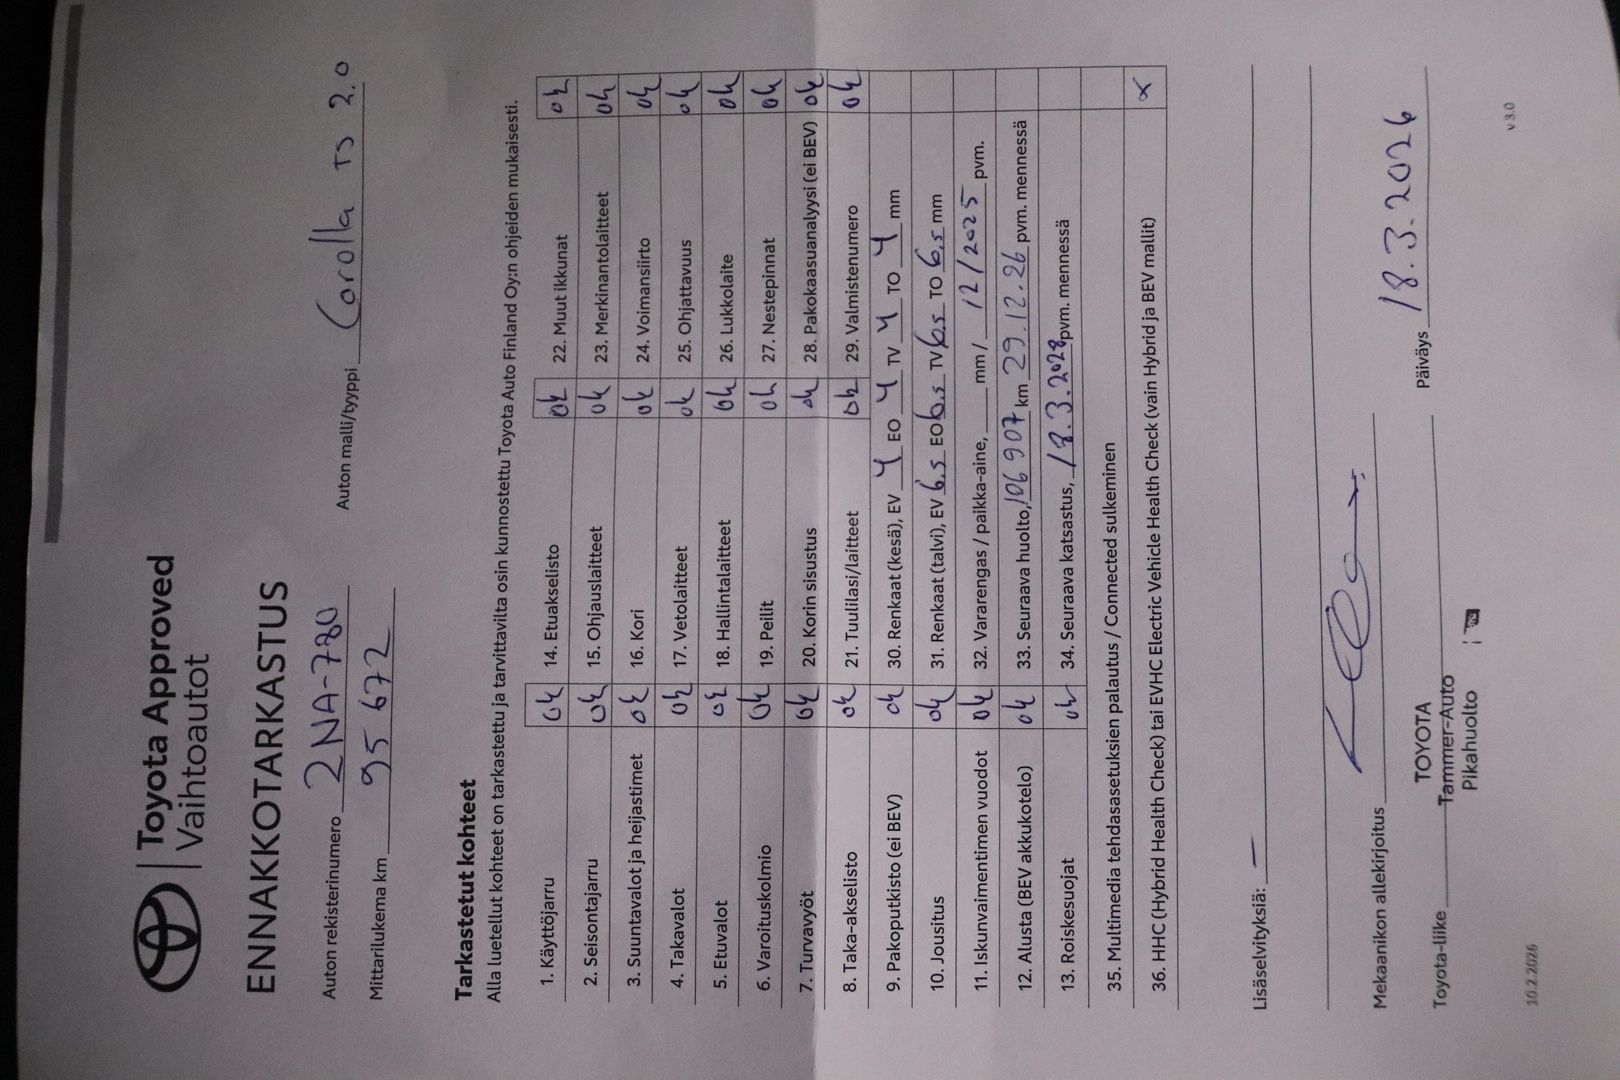 Toyota Approved
Vaihtoautot
ENNAKKOTARKASTUS
Auton rekisterinumero 2NA-780 Auton malli/tyyppi Corolla TS 2.0
Mittarilukema km 95 672
Tarkastetut kohteet
Alla luetellut kohteet on tarkastettu ja tarvittavilta osin kunnostettu Toyota Auto Finland Oy:n ohjeiden mukaisesti.
1. Käyttöjarru ok 14. Etuakselisto ok 22. Muut ikkunat ok
2. Seisontajarru ok 15. Ohjauslaitteet ok 23. Merkinantolaitteet ok
3. Suuntavalot ja heijastimet ok 16. Kori ok 24. Voimansiirto ok
4. Takavalot ok 17. Vetolaitteet ok 25. Ohjattavuus ok
5. Etuvalot ok 18. Hallintalaitteet ok 26. Lukkolaite ok
6. Varoituskolmio ok 19. Peilit ok 27. Nestepinnat ok
7. Turvavyöt ok 20. Korin sisustus ok 28. Pakokaasuanalyysi (ei BEV) ok
8. Taka-akselisto ok 21. Tuulilasi/laitteet ok 29. Valmistenumero ok
9. Pakoputkisto (ei BEV) ok 30. Renkaat (kesä), EV 4 EO 4 TV 4 TO 4 mm
10. Jousitus ok 31. Renkaat (talvi), EV 6.5 EO 6.5 TV 6.5 TO 6.5 mm
11. Iskunvaimentimen vuodot ok 32. Vararengas / paikka-aine, mm / 12/2025 pvm.
12. Alusta (BEV akkukotelo) ok 33. Seuraava huolto, 106907 km 29.12.26 pvm. mennessä
13. Roiskesuojat ok 34. Seuraava katsastus, 18.3.2028 pvm. mennessä
35. Multimedia tehdasasetuksien palautus / Connected sulkeminen
36. HHC (Hybrid Health Check) tai EVHC Electric Vehicle Health Check (vain Hybrid ja BEV mallit)
Lisäselvityksiä: –
Mekaanikon allekirjoitus
Toyota-liike TOYOTA Päiväys 18.3.2026
Tammer-Auto
Pikahuolto
10.2.2026 v 3.0